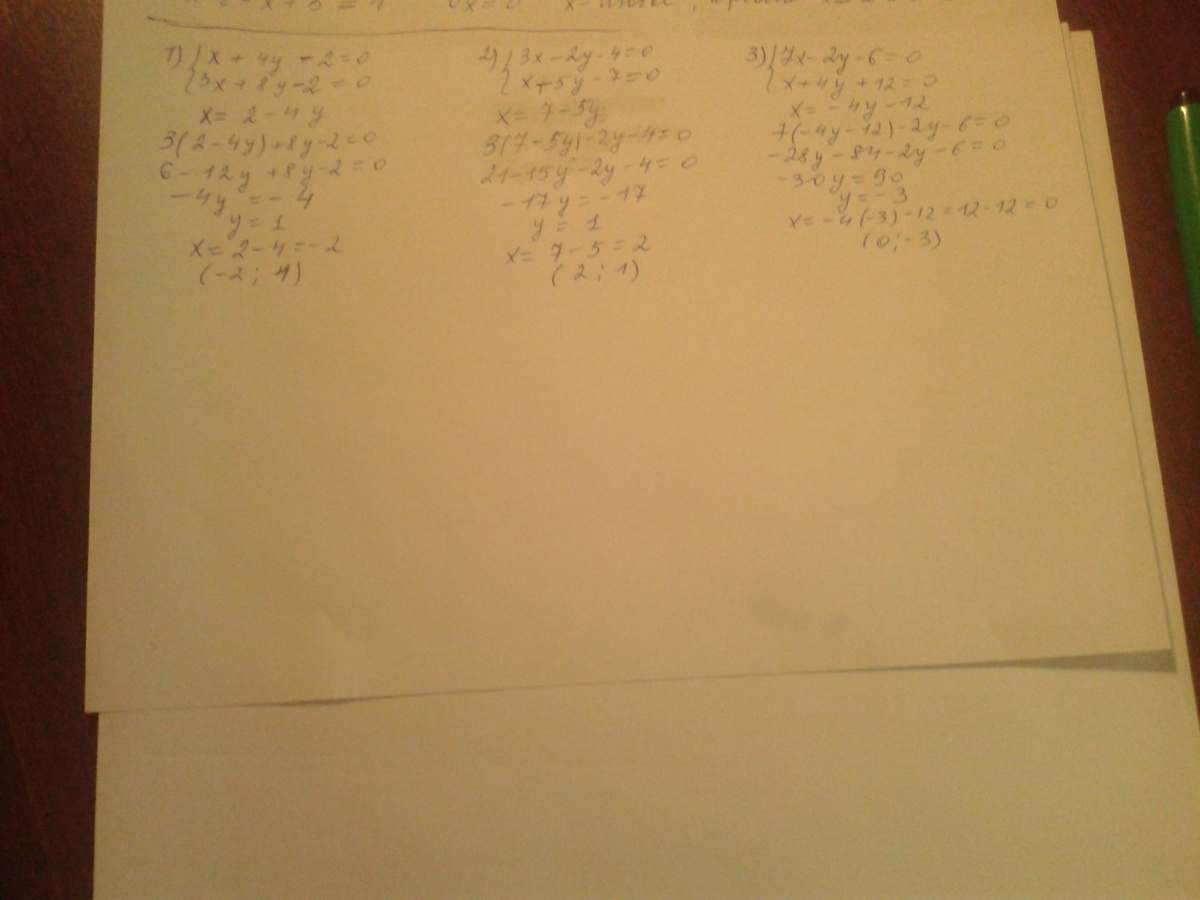 x + 5 = 1   0x=0   x -
1) { x + 4y - 2=0
{ 3x + 8y - 2 = 0
x= 2 - 4y
3(2 - 4y)+8y-2=0
6 - 12y +8y-2=0
-4y = - 4
y= 1
x= 2-4=-2
(-2; 1)
2) { 3x-2y-4=0
{ x+5y-7=0
x= 7-5y
3(7-5y)-2y-4=0
21-15y-2y-4=0
-17y=-17
y= 1
x= 7-5=2
(2; 1)
3) { 7x-2y-6=0
{ x+4y+12=0
x= -4y-12
7(-4y-12)-2y-6=0
-28y-84-2y-6=0
-30y=90
y=-3
x=-4(-3)-12=12-12=0
(0;-3)